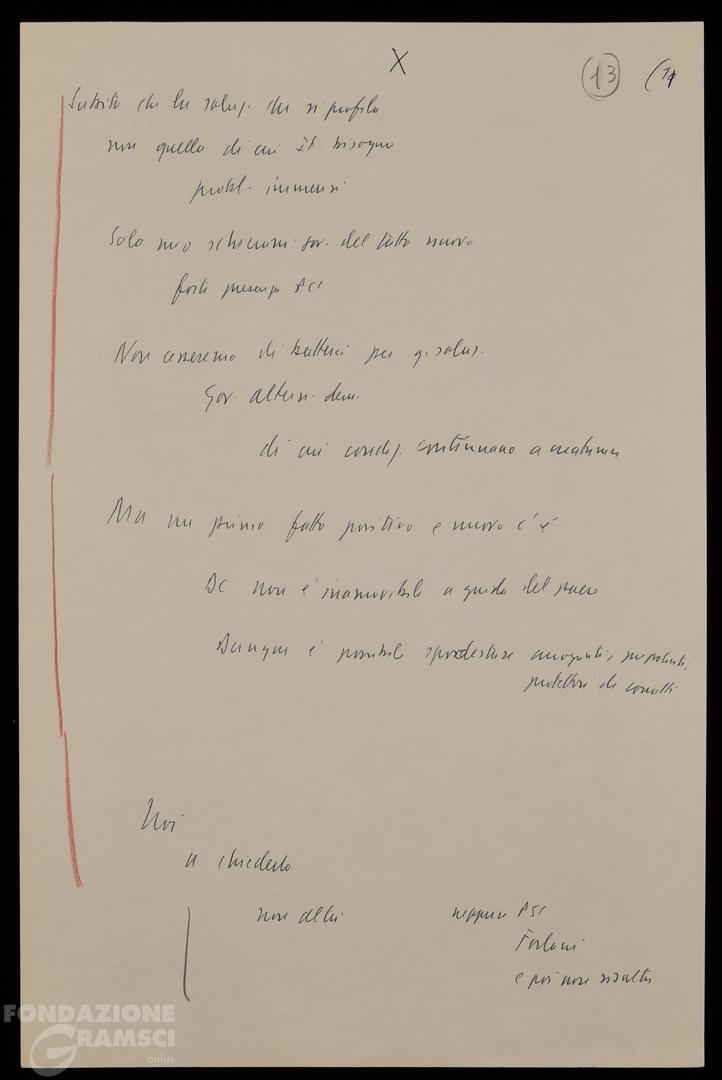 X
13
Subito che la soluz. che si profila
non quella di cui It. bisogno
probl. immensi
Solo uno schieram. gov. del tutto nuovo
forte presenza PCI
Non cesseremo di batterci per q. soluz.
Gov. altern. dem.
di cui condiz. continuano a maturare
Ma un primo fatto positivo e nuovo c'è
DC non è inamovibile a guida del paese
Dunque è possibile spodestare arroganti, prepotenti,
protettori di corrotti
Noi
a chiederlo
non altri neppure PSI
Forlani
e poi non
FONDAZIONE
GRAMSCI
onlus